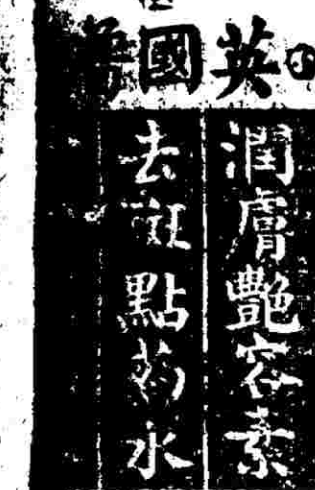 英國
潤膚艷容素
去點药水